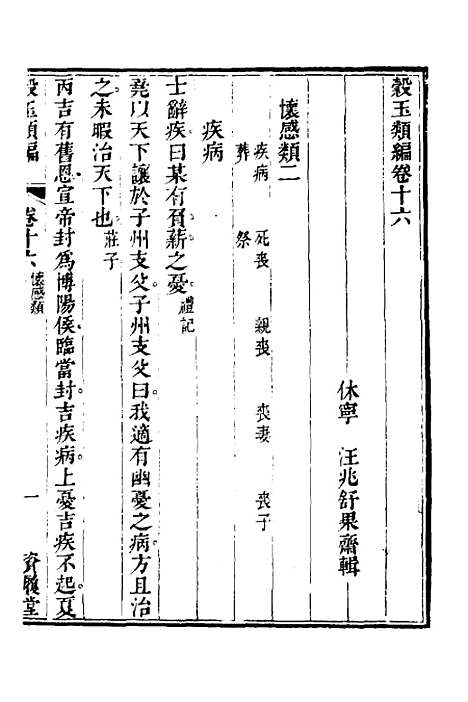 穀玉類編卷十六
休寧 汪兆舒果齋輯
懷感類二
疾病 死喪 親喪 喪妻 喪子
葬 祭
疾病
士辭疾曰某有負薪之憂禮記
堯以天下讓於子州支父子州支父曰我適有幽憂之病方且治
之未暇治天下也莊子
丙吉有舊恩宣帝封爲博陽侯臨當封吉疾病上憂吉疾不起夏
穀玉類編 卷十六 懷感類 一 資履堂